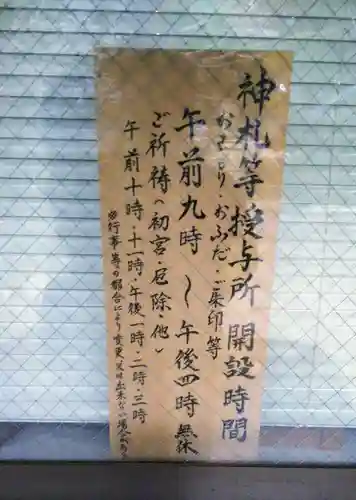 神札等授与所開設時間
おまもり・おふだ・ご朱印等
午前九時～午後四時 無休
ご祈祷(初宮・厄除・他)
午前十時・十一時・午後一時・二時・三時
※行事等の都合により変更、又は出来ない場合あり